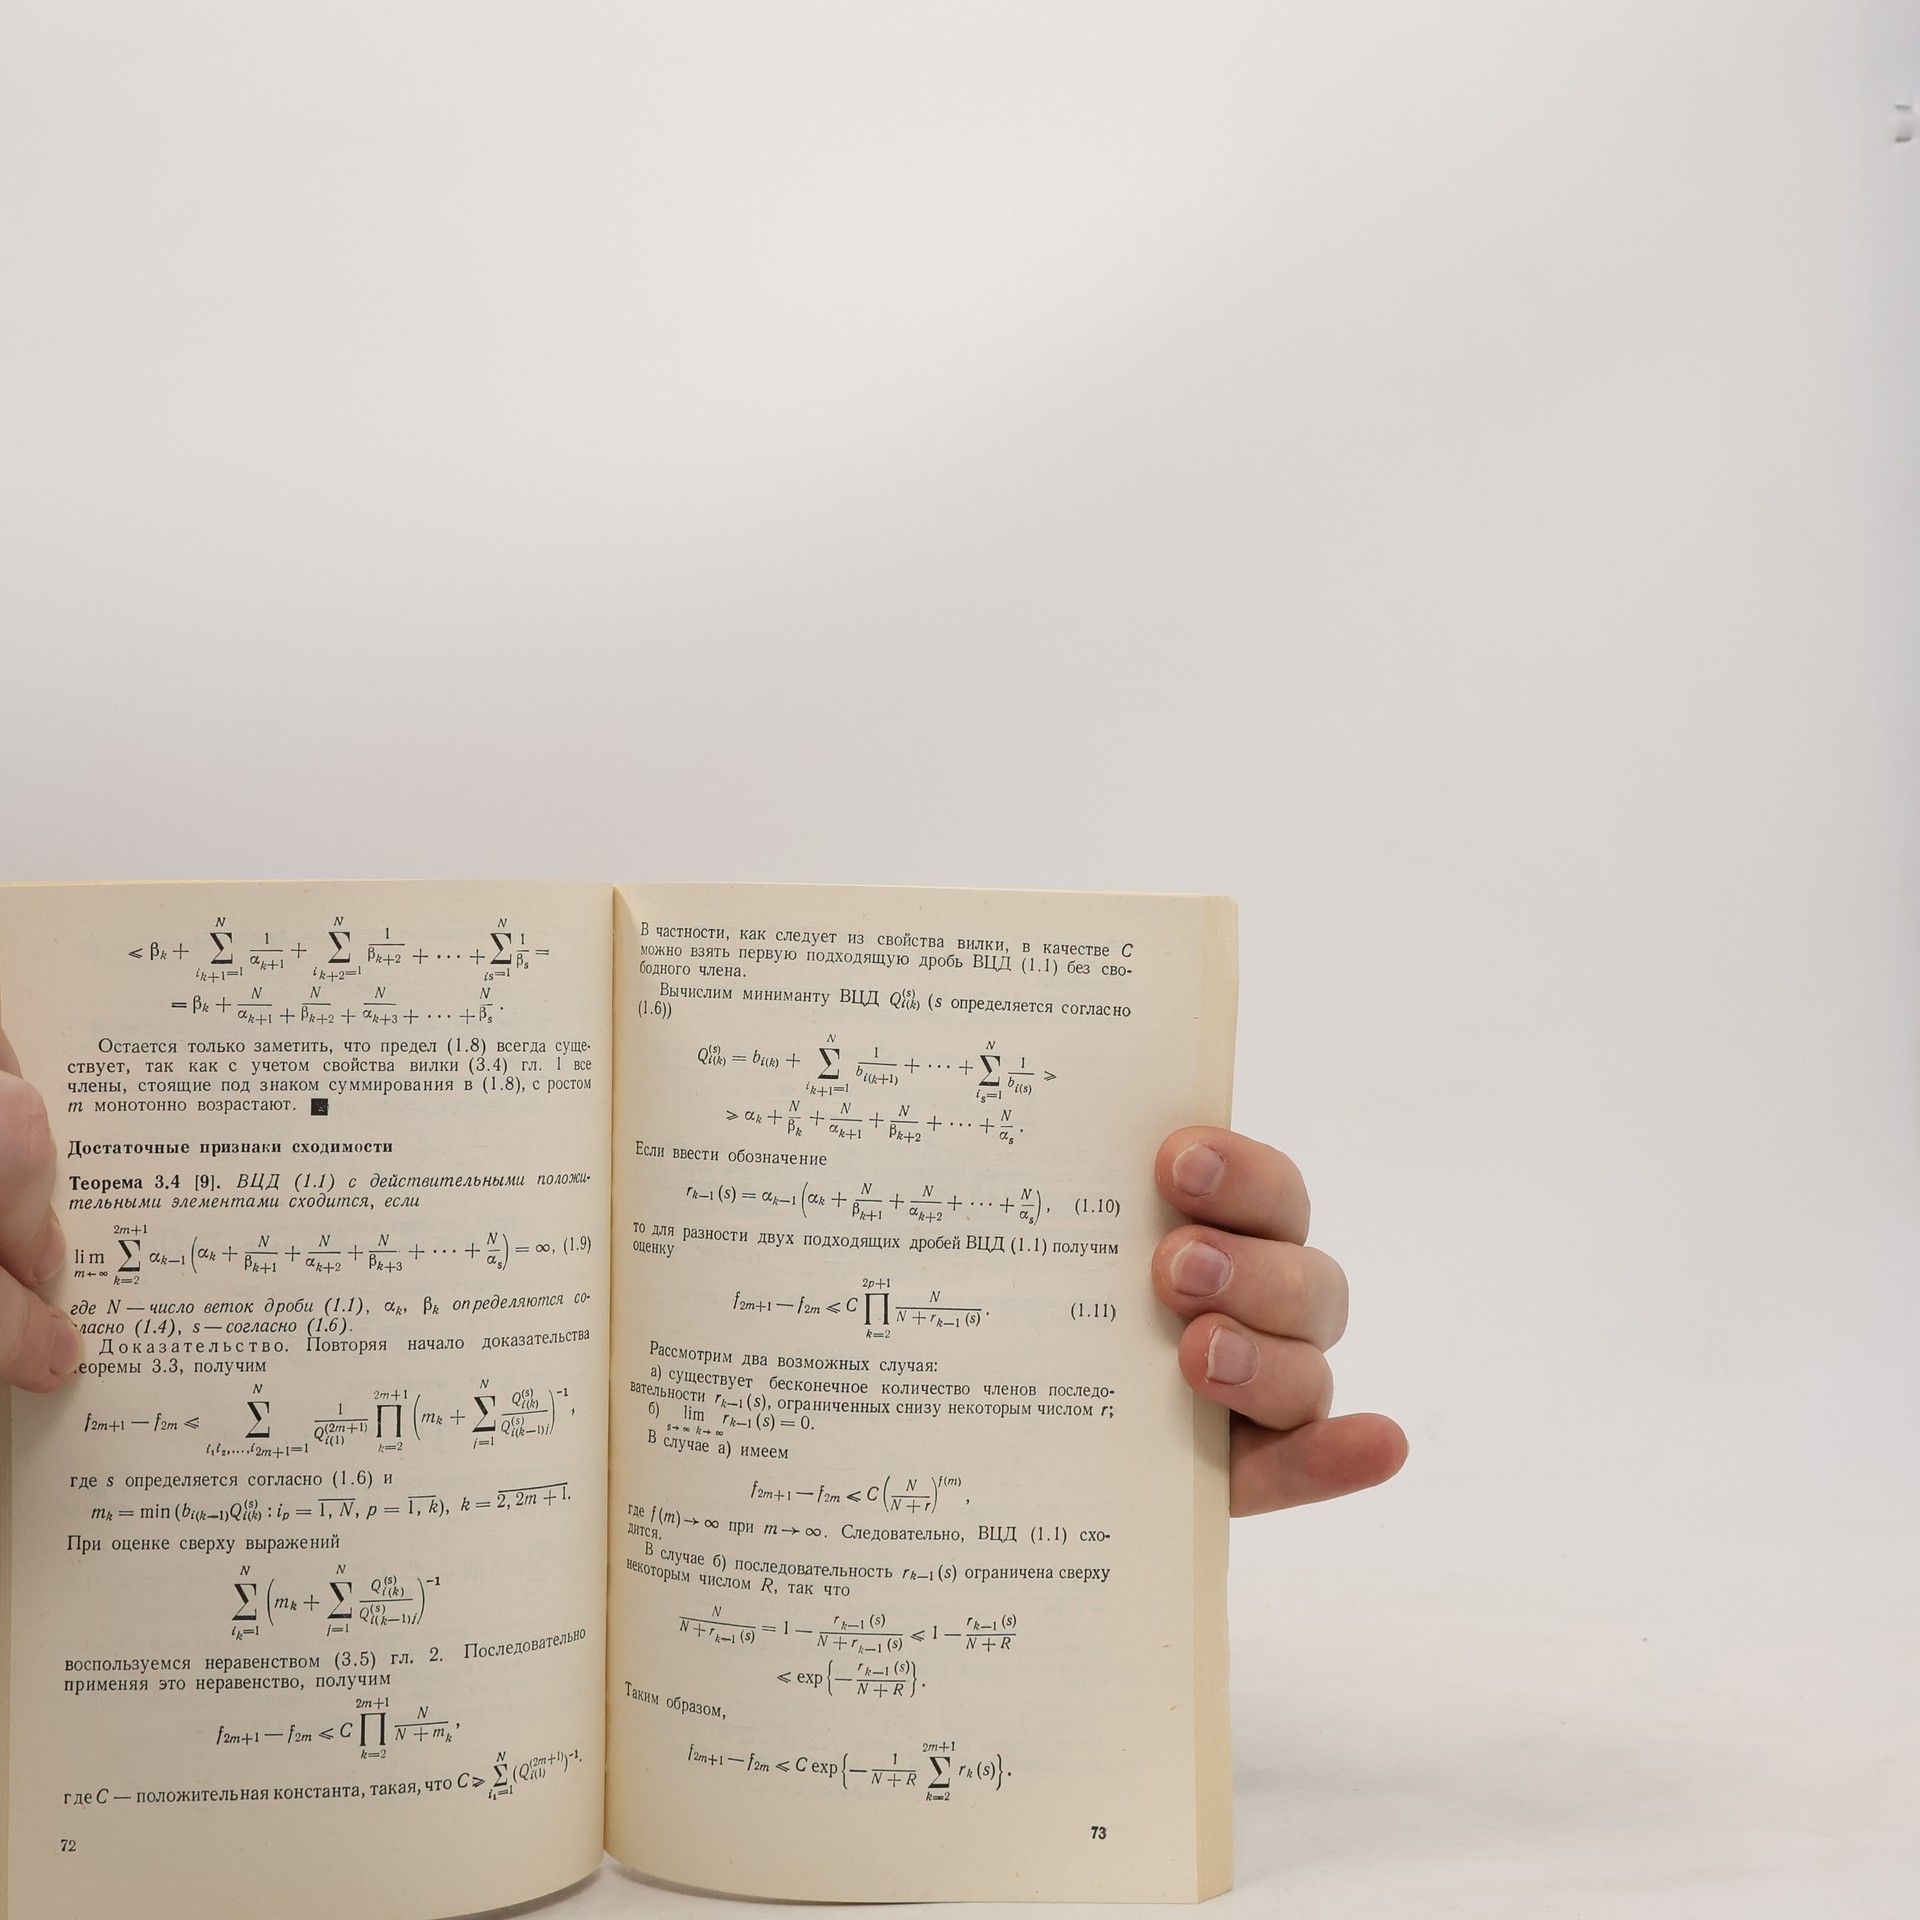 ⩽ βₖ + ∑_{iₖ₊₁=1}^{N} 1/αₖ₊₁ + ∑_{iₖ₊₂=1}^{N} 1/βₖ₊₂ + ··· + ∑_{is=1}^{N} 1/βₛ =
= βₖ + N/αₖ₊₁ + N/βₖ₊₂ + N/αₖ₊₃ + ··· + N/βₛ.
Остается только заметить, что предел (1.8) всегда суще-
ствует, так как с учетом свойства вилки (3.4) гл. 1 все
члены, стоящие под знаком суммирования в (1.8), с ростом
m монотонно возрастают. ■
Достаточные признаки сходимости
Теорема 3.4 [9]. ВЦД (1.1) с действительными положи-
тельными элементами сходится, если
lim_{m→∞} ∑_{k=2}^{2m+1} αₖ₋₁ (αₖ + N/βₖ₊₁ + N/αₖ₊₂ + N/βₖ₊₃ + ··· + N/αₛ) = ∞, (1.9)
где N — число веток дроби (1.1), αₖ, βₖ определяются со-
гласно (1.4), s — согласно (1.6).
Доказательство. Повторяя начало доказательства
теоремы 3.3, получим
f_{2m+1} — f_{2m} ⩽ ∑_{i₁,i₂,...,i_{2m+1}=1}^{N} 1/Q_{i(1)}^{(2m+1)} ∏_{k=2}^{2m+1} (mₖ + ∑_{j=1}^{N} Q_{i(k)}^{(s)}/Q_{i(k—1)j}^{(s)})^{-1},
где s определяется согласно (1.6) и
mₖ = min (b_{i(k—1)}Q_{i(k)}^{(s)} : iₚ = 1, N, p = 1, k), k = 2, 2m + 1.
При оценке сверху выражений
∑_{iₖ=1}^{N} (mₖ + ∑_{j=1}^{N} Q_{i(k)}^{(s)}/Q_{i(k—1)j}^{(s)})^{-1}
воспользуемся неравенством (3.5) гл. 2. Последовательно
применяя это неравенство, получим
f_{2m+1} — f_{2m} ⩽ C ∏_{k=2}^{2m+1} N/(N + mₖ),
где C — положительная константа, такая, что C ⩾ ∑_{i₁=1}^{N} (Q_{i(1)}^{(2m+1)})^{-1}.
72
В частности, как следует из свойства вилки, в качестве C
можно взять первую подходящую дробь ВЦД (1.1) без сво-
бодного члена.
Вычислим миниманту ВЦД Q_{i(k)}^{(s)} (s определяется согласно
(1.6))
Q_{i(k)}^{(s)} = b_{i(k)} + ∑_{iₖ₊₁=1}^{N} 1/b_{i(k+1)} + ··· + ∑_{iₛ=1}^{N} 1/b_{i(s)} ⩾
⩾ αₖ + N/βₖ + N/αₖ₊₁ + N/βₖ₊₂ + ··· + N/αₛ.
Если ввести обозначение
rₖ₋₁ (s) = αₖ₋₁ (αₖ + N/βₖ₊₁ + N/αₖ₊₂ + ··· + N/αₛ), (1.10)
то для разности двух подходящих дробей ВЦД (1.1) получим
оценку
f_{2m+1} — f_{2m} ⩽ C ∏_{k=2}^{2p+1} N/(N + rₖ₋₁ (s)). (1.11)
Рассмотрим два возможных случая:
а) существует бесконечное количество членов последо-
вательности rₖ₋₁ (s), ограниченных снизу некоторым числом r;
б) lim_{s→∞ k→∞} rₖ₋₁ (s) = 0.
В случае а) имеем
f_{2m+1} — f_{2m} ⩽ C (N/(N + r))^{f(m)},
где f (m) → ∞ при m → ∞. Следовательно, ВЦД (1.1) схо-
дится.
В случае б) последовательность rₖ₋₁ (s) ограничена сверху
некоторым числом R, так что
N/(N + rₖ₋₁ (s)) = 1 — rₖ₋₁ (s)/(N + rₖ₋₁ (s)) ⩽ 1 — rₖ₋₁ (s)/(N + R)
⩽ exp {— rₖ₋₁ (s)/(N + R)}.
Таким образом,
f_{2m+1} — f_{2m} ⩽ C exp {— 1/(N + R) ∑_{k=2}^{2m+1} rₖ (s)}.
73